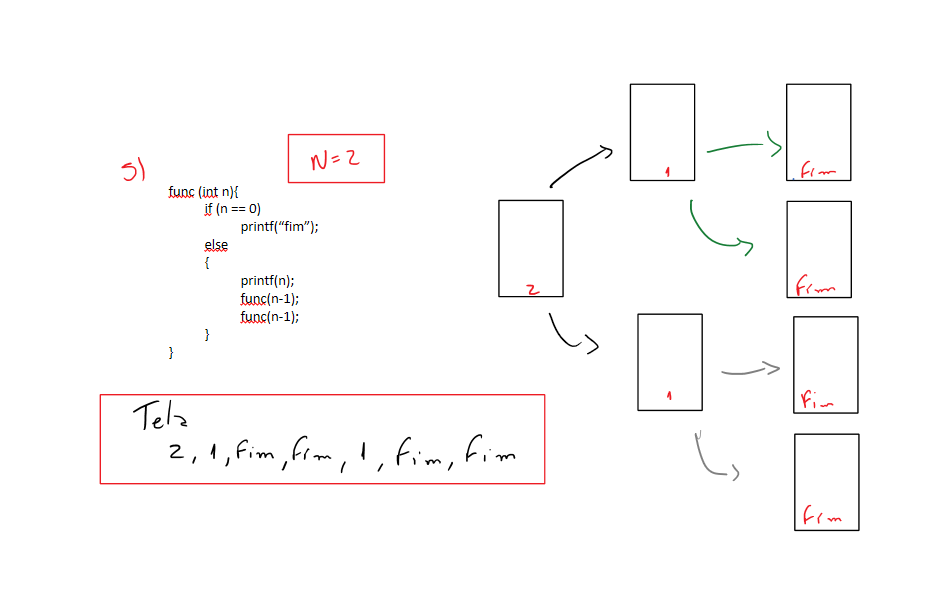 5)
N=2
func (int n){
if (n == 0)
printf(“fim”);
else
{
printf(n);
func(n-1);
func(n-1);
}
}
Tela
2, 1, fim, fim, 1, fim, fim
2
1
fim
fim
1
fim
fim